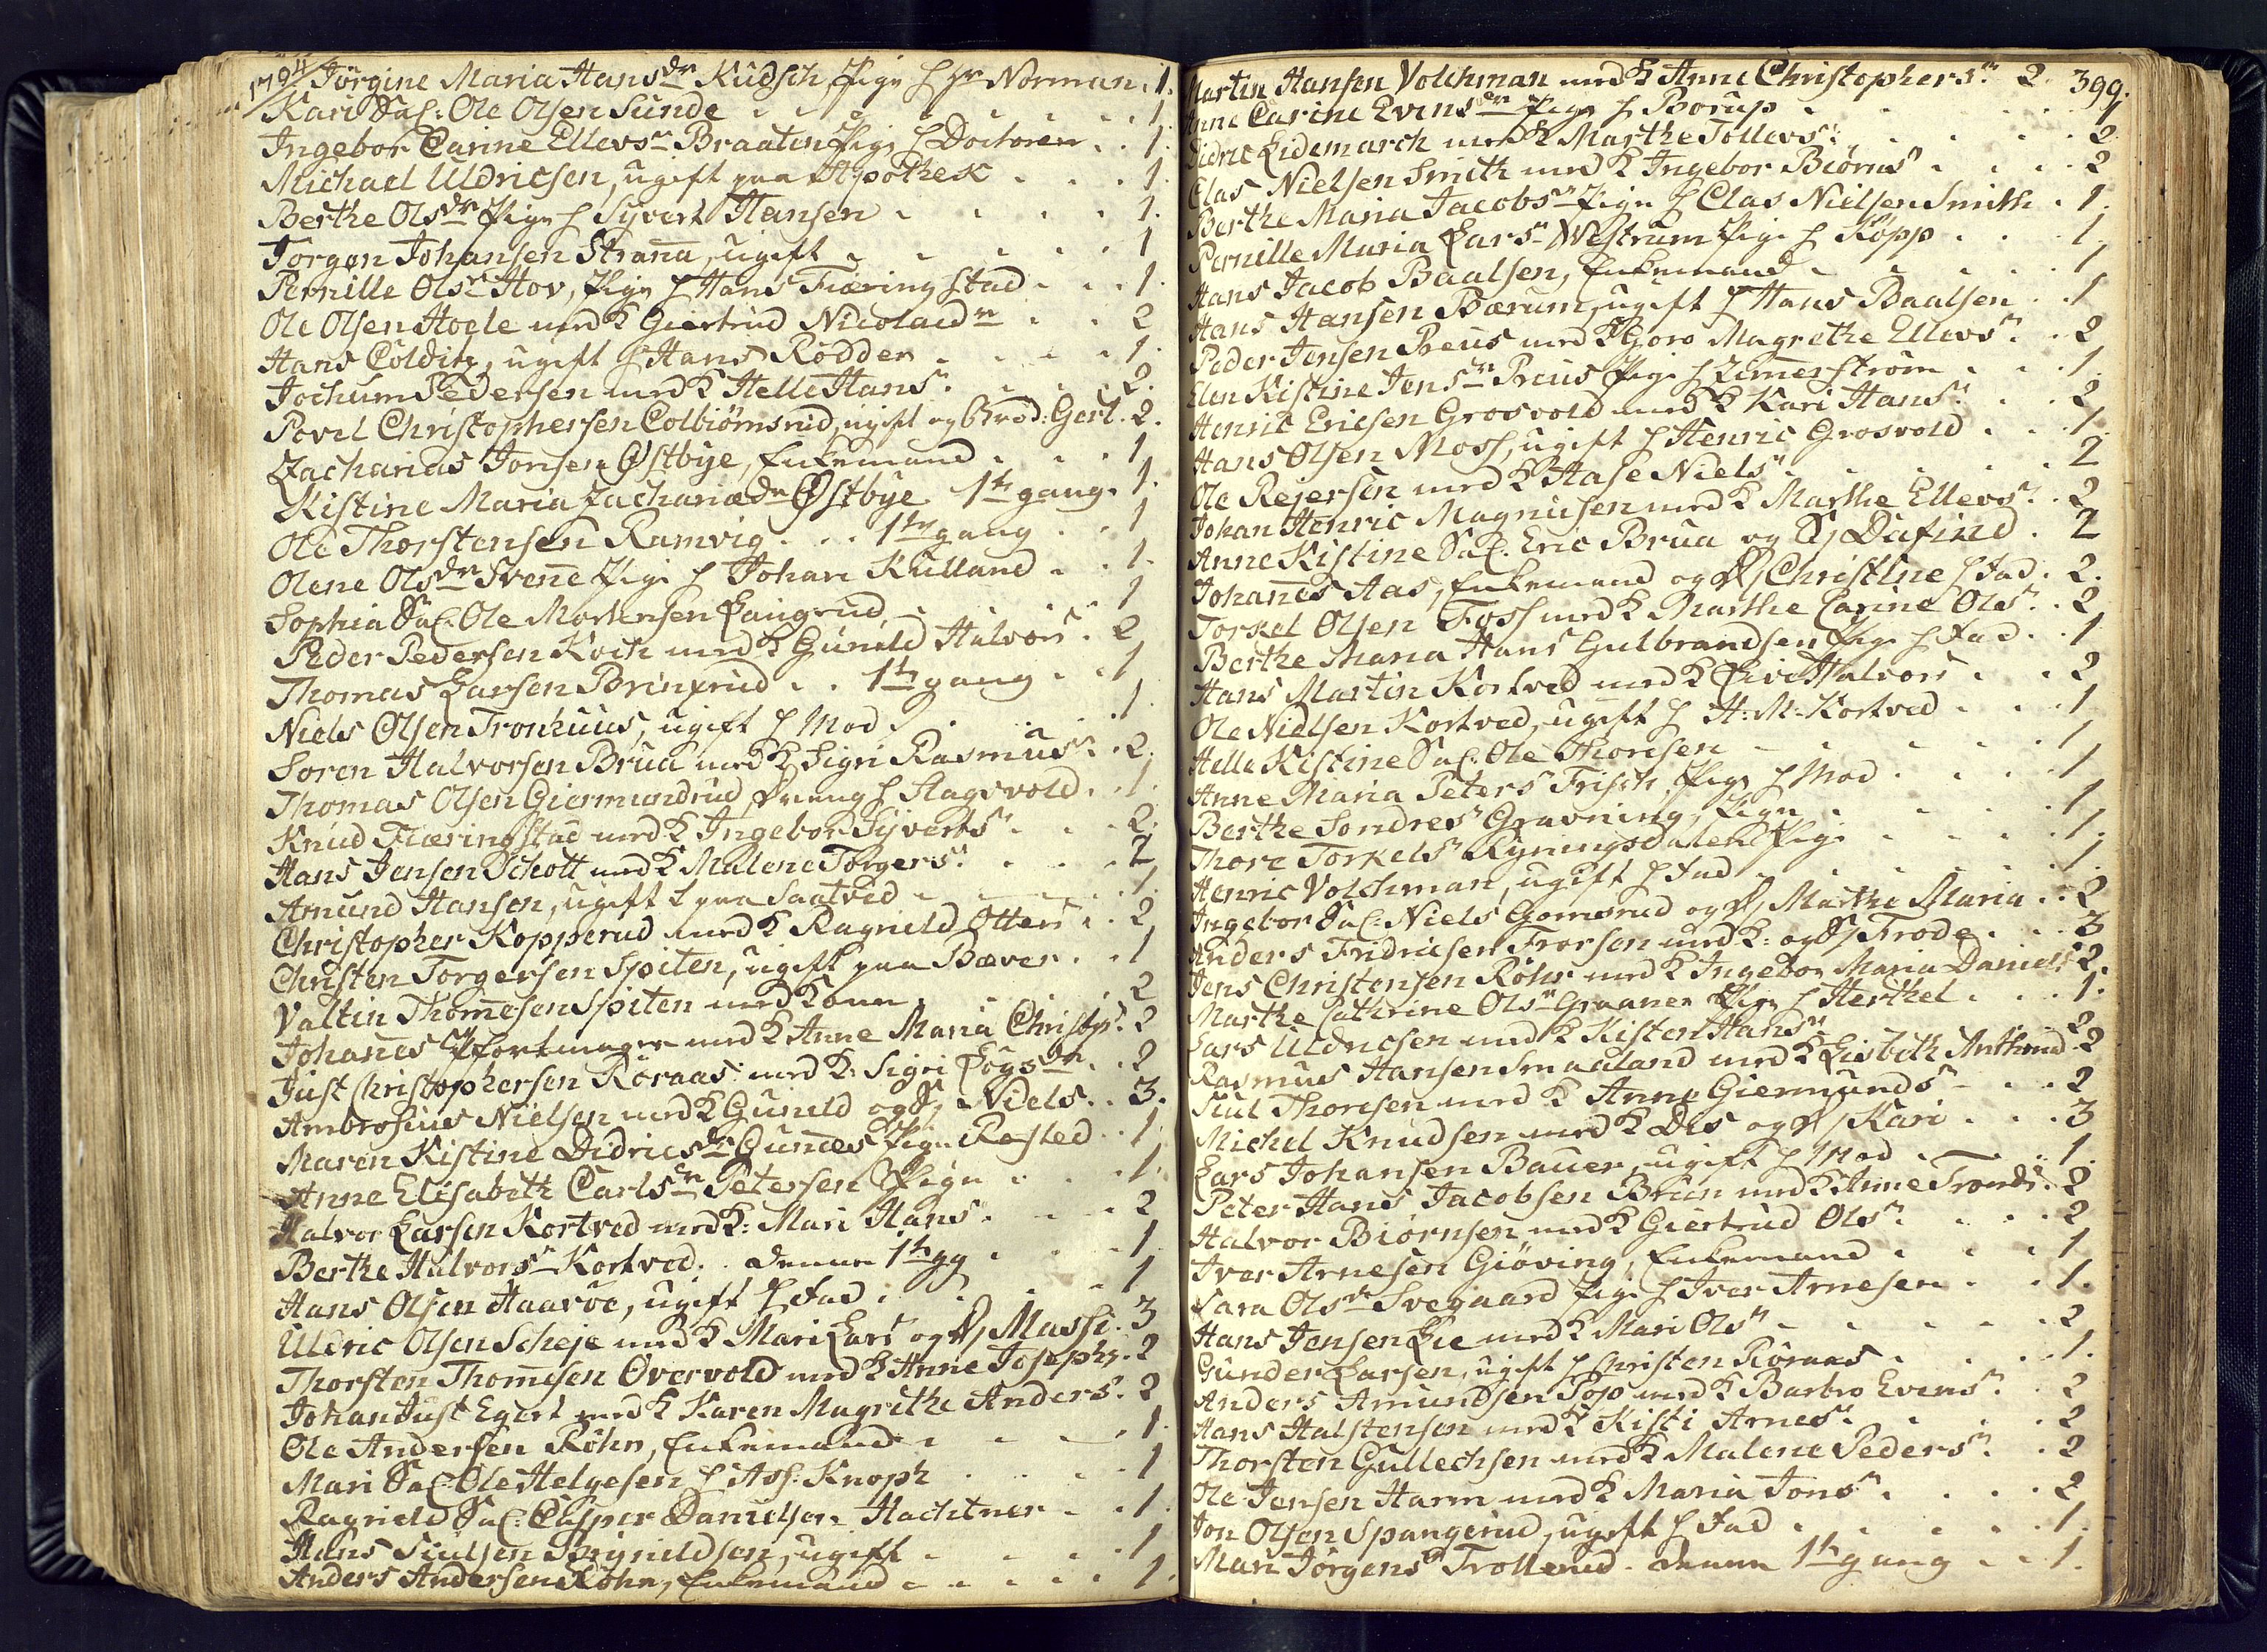 1794 Jörgine Maria Hansdr Kudsch Pige h Hr Norman . 1.
Kari Sal: Ole Olsen Sunde . . . 1
Ingebor Carine Ellevsdr Braaten Pige h Doctoren . . 1.
Michael Uldricsen, ugift paa Apothek . . . 1.
Berthe Olsdr Pige h Syvert Hansen . . . . 1.
Jörgen Johansen Strana, ugift . . . . 1
Pernille Olsdr Hov, Pige h Hans Fiæringstad . . . 1.
Ole Olsen Hoele med K Giertrud Nicolaidr . . 2
Hans Colditz, ugift h Hans Rödder . . . . 1.
Jochum Pedersen med K Helle Hansdr . . . 2.
Povel Christophersen Colbiörnsrud, ugift og Gert . 2.
Zacharias Jonsen Østbye, Enkemand . . . 1
Kistine Maria Zachariædr Østbye 1te gang . 1.
Ole Thorstensen Ramvig . . . 1te gang . . 1
Olene Olsdr Svene Pige h Johan Kulland . . . 1.
Sophia Sal: Ole Mortensen Laugerud . . 1
Peder Pedersen Koch med K Gunild Halvors . 2
Thomas Larsen Brinxrud . . 1te gang . . 1
Niels Olsen Tronhuus, ugift h Mod . . . 1.
Soren Halvorsen Brua med K Sigri Rasmusdr . 2.
Thomas Olsen Giermundrud Dreng h Hagsvold . 1.
Knud Fiæringstad med K Ingebor Syvertsdr . . . 2.
Hans Jensen Schott med K Malene Torgersdr . . . 2
Amund Hansen, ugift h paa Saatved . . . 1.
Christopher Kopperud med K Ragnild Otters . . 2
Christen Torgersen Spiten, ugift paa Bæver . . 1
Valtin Thomesen Spiten med Kone . . . 2
Johanes med K Anne Maria Christophs . 2
Just Christophersen Röraas med K: Sigri . . 2
Ambrosius Nielsen med K Gunild og S/ Niels . . 3.
Maren Kistine Didricsdr Gunæs Pige Rosted . . 1.
Anne Elisabeth Carlsdr Petersen Pige . . . 1.
Halvor Larsen Kortved med K: Mari Hans . . . 2
Berthe Halvorsdr Kortved . . denne 1te gg . . . 1.
Hans Olsen Haavoe, ugift h Fad . . . . 1
Uldric Olsen Scheje med K Mari Lars og D/ Massi . 3
Thorsten Thomesen Overvold med K Anne Josephs . 2
Johan Just Egert med K Karen Magrethe Anders . 2
Ole Andersen Röhn, Enkemand . . . . 1.
Mari Sal: Ole Helgesen h Ass: Knoph . . . 1
Ragnild Sal: Casper Danielsen Hachtner . . . 1.
Hans Siulsen Spignildsen, ugift . . . . 1
Anders Andersen Röhn, Enkemand . . . . . 1.
Martin Hansen Volchman med K Anne Christophersdr 2. 399.
Anne Carine Evensdr Pige h Borup . . . 1
Didric Lidemarch med K Marthe Tollevs . . . 2
Clas Nielsen Smith med K Ingebor Biörns . . . . 2
Berthe Maria Jacobsdr Pige h Clas Nielsen Smith . 1.
Pernille Maria Larsdr Westrum Pige h Köpp . . . 1.
Hans Jacob Baalsen, Enkemand . . . . 1
Hans Hansen Bærum, ugift h Hans Baalsen . . 1
Peder Jensen Preus med K Goro Magrethe Ellevsdr . . 2
Elen Kistine Jensdr Preus Pige h Zimerström . . . 1.
Henric Ericsen Grosvold med K Kari Hansdr . . . 2
Hans Olsen Moss, ugift h Henric Grosvold . . . 1.
Ole Rejersen med K Hase Nielsdr . . . . 2
Johan Henric Magnusen med K Marthe Ellevsdr . . 2
Anne Kistine Sal: Eric Brua og D/ Dafind . 2
Johanes Aas, Enkemand og D/ Christine h Fad . 2.
Torkel Olsen Foss med K Marthe Carine Olsdr . . 2
Berthe Maria Hans Gulbrandsen Pige h Fad . . 1
Hans Martin Kortved med K Live Halvors . . . 2
Ole Nielsen Kortved, ugift h H: M: Kortved . . . 1
Helle Kistine Sal: Ole Thoresen . . . . . 1
Anne Maria Peters Frisch, Pige h Mod . . . . 1
Berthe Sondresdr Gravning, Pige . . . . 1
Thore Torkelsdr Rÿningsdalen Pige . . . . 1.
Henric Volchman, ugift h Fad . . . . . 1.
Ingebor Sal: Niels Gomsrud og D/ Marthe Maria . . 2
Anders Fridricsen Frorsen med K: og S/ Frode . . . 3
Jens Christensen Röhr med K Ingebor Maria Daniels 2.
Marthe Cathrine Olsdr Graanen Pige h Herthel . . . 1.
Lars Uldricsen med K Kisten Hansdr . . . 2
Rasmus Hansen Smaaland med K Lisbeth Anthonid . 2
Siul Thoresen med K Anne Giermundsdr . . . 2
Michel Knudsen med K Dis og D/ Kari . . . 3
Lars Johansen Bauer, ugift h Mod . . . . 1.
Peter Hans Jacobsen Brun med K Anne Tronds . 2
Halvor Biörnsen med K Giertrud Olsdr . . . . 2
Iver Arnesen Giöving, Enkemand . . . . 1
Sara Olsdr Svegaard Pige h Iver Arnesen . . . 1.
Hans Jensen Lie med K Mari Olsdr . . . . . 2
Gunder Larsen, ugift h Christen Röraas . . . . 1.
Anders Amundsen Pop med K Barbro Evensdr . . 2
Hans Halstensen med K Kisti Arnesdr . . . . 2
Thorsten Gullechsen med K Malene Pedersdr . . 2
Ole Jensen Harm med K Maria Jonsdr . . . . 2
Jon Olsen Spangerud, ugift h Fad . . . . . 1.
Mari Jörgensdr Trollerud . denne 1te gang . . 1.